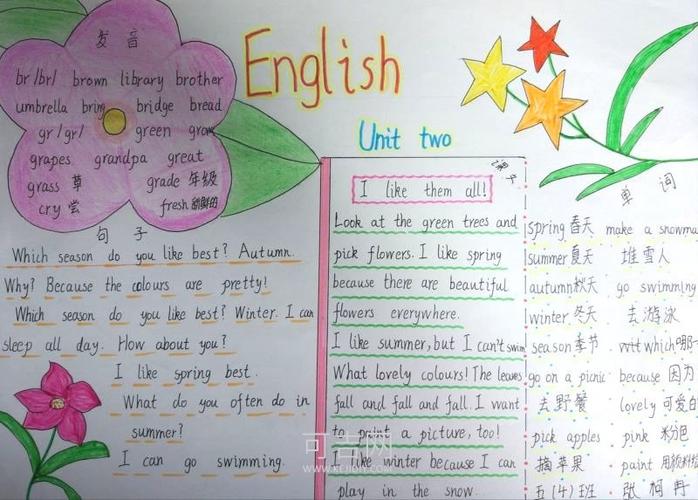 English
Unit two
发音
br /br/ brown library brother
umbrella bring bridge bread
gr /gr/ green grow
grapes grandpa great
grass 草 grade 年级
cry 尝 fresh 新鲜的
句子
Which season do you like best? Autumn.
Why? Because the colours are pretty!
Which season do you like best? Winter. I can
sleep all day. How about you?
I like spring best.
What do you often do in
summer?
I can go swimming.
I like them all!
Look at the green trees and
pick flowers. I like spring
because there are beautiful
flowers everywhere.
I like summer, but I can't swim
What lovely colours! The leaves
fall and fall and fall. I want
to paint a picture, too!
I like winter because I can
play in the snow.
单词
spring 春天 make a snowma
summer 夏天 堆雪人
autumn 秋天 go swimming
winter 冬天 去游泳
season 季节 which 哪一
go on a picnic because 因为
去野餐 lovely 可爱的
pick apples pink 粉色
摘苹果 paint
五(4)班 张柯冉
可言网